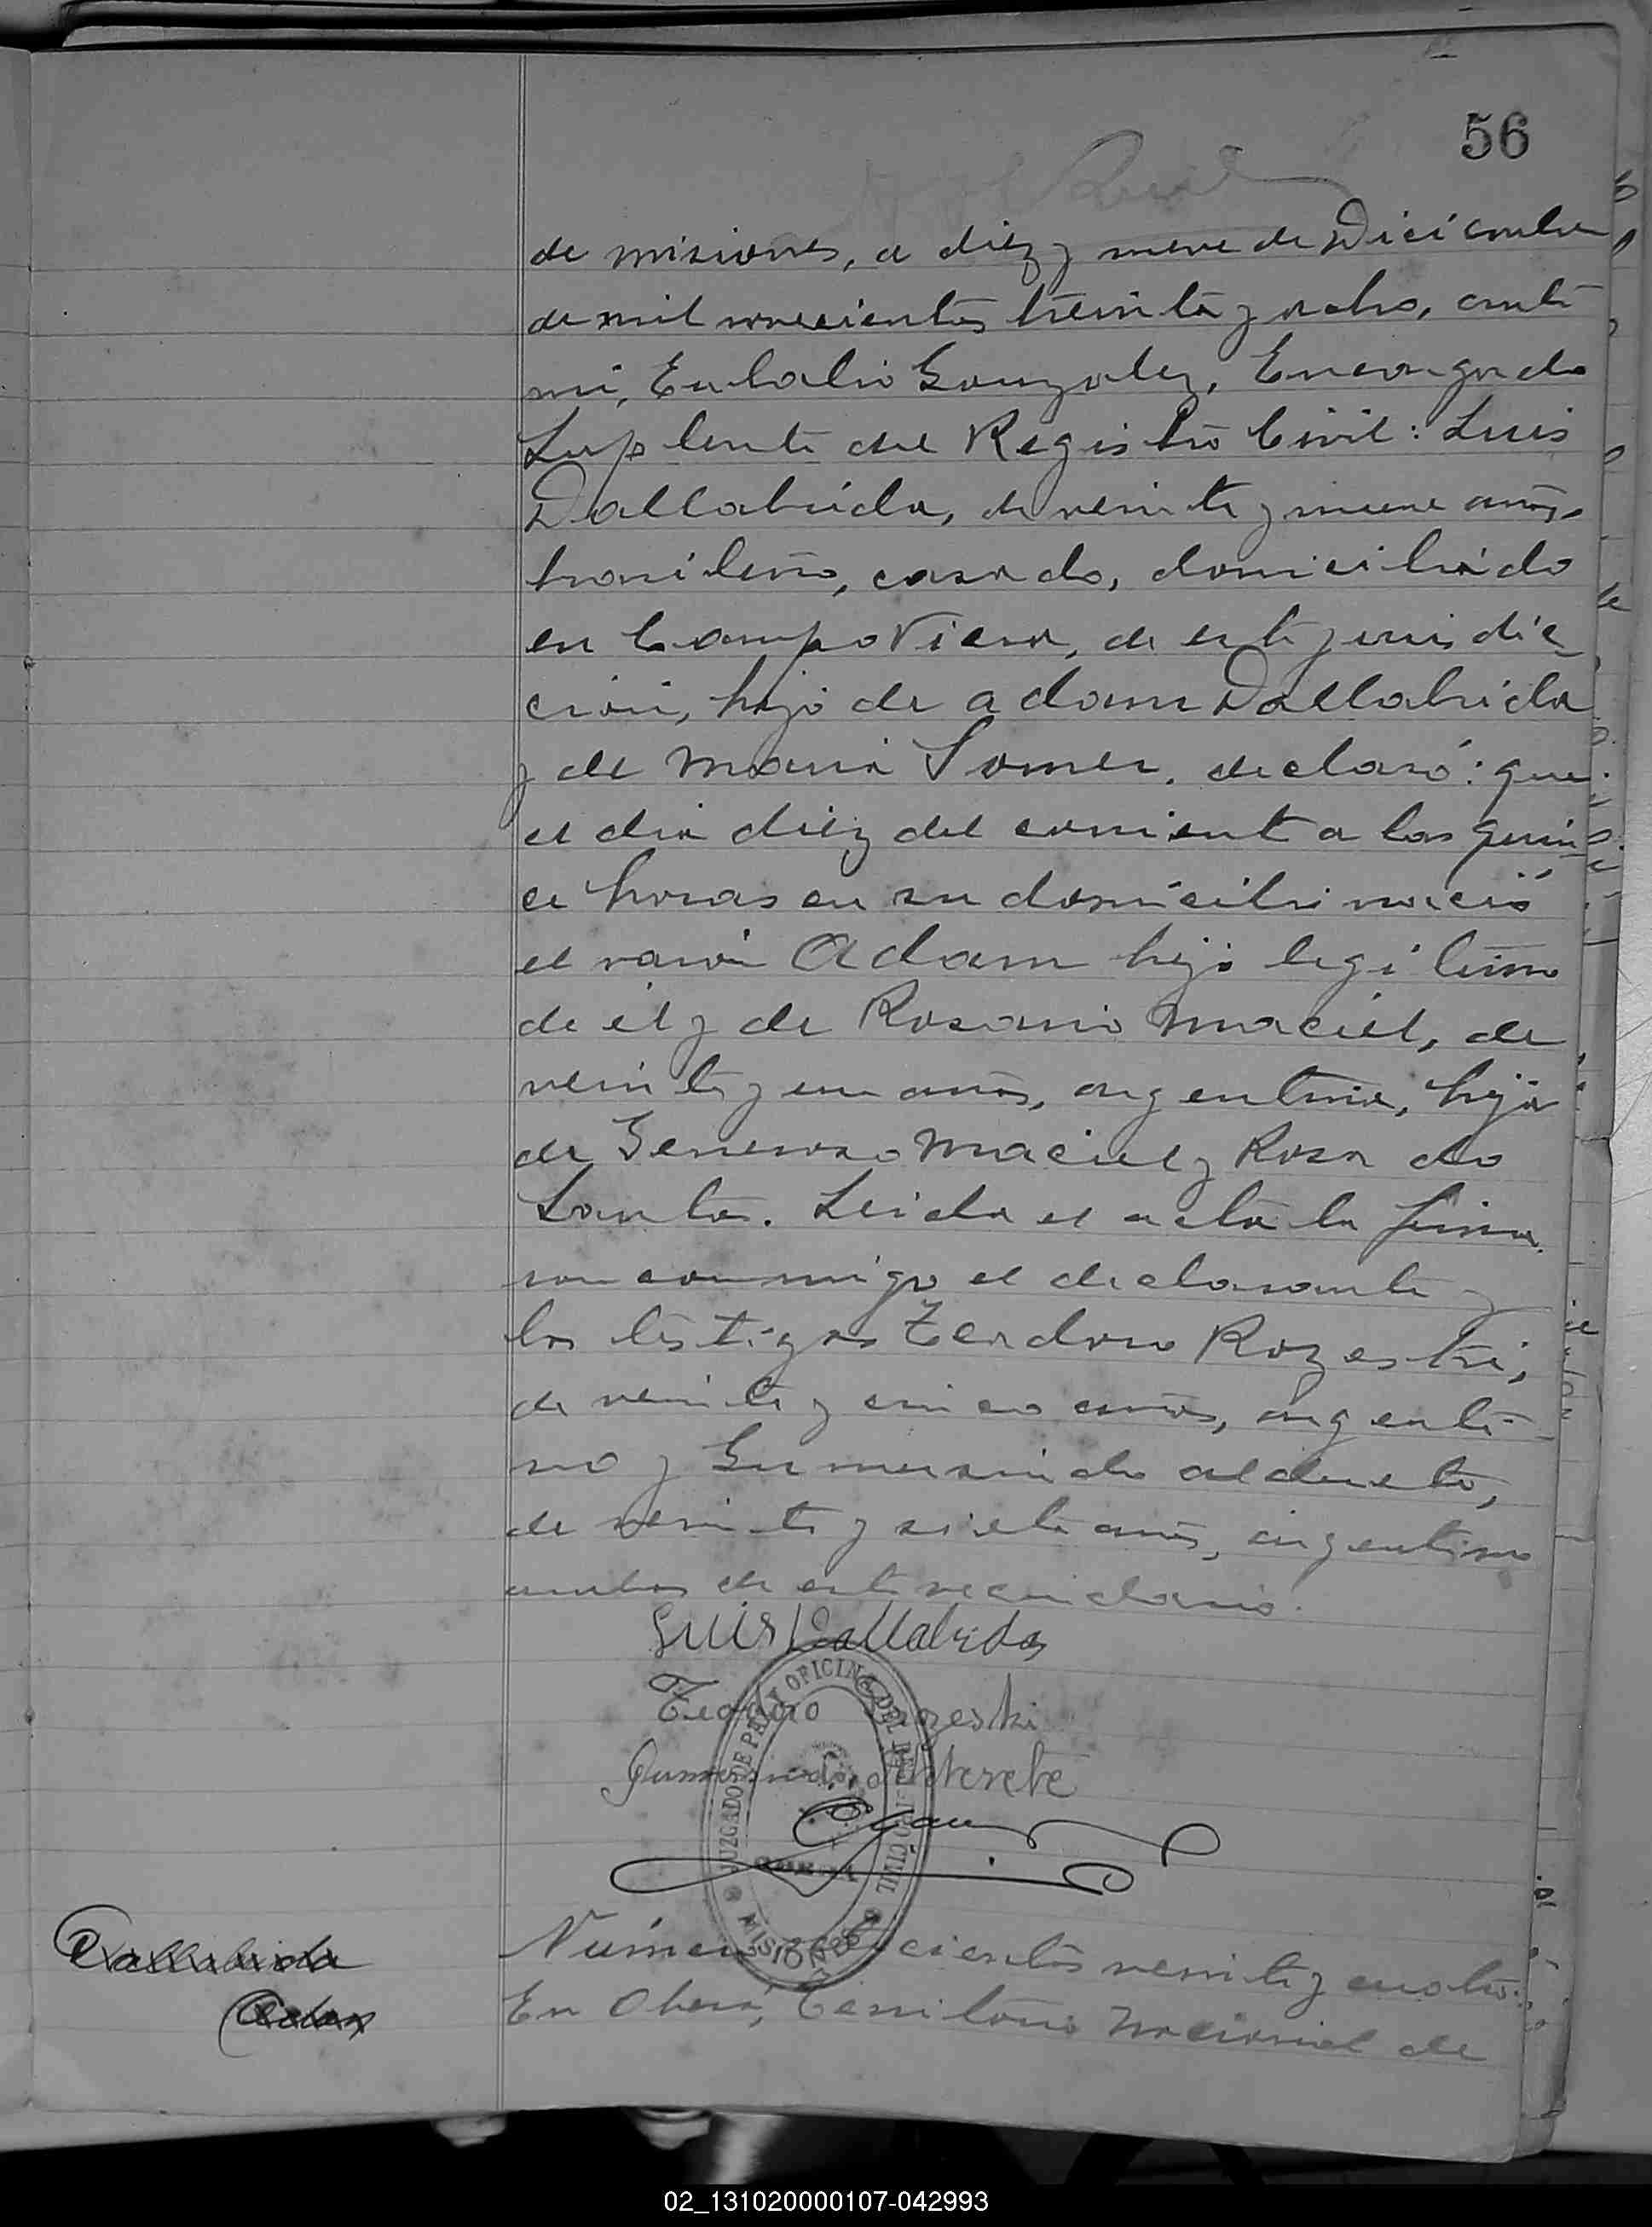 56
de misiones, a diez y nueve de Diciembre
de mil novecientos treinta y ocho, ante
mi, Eulalio Gonzalez, Encargado
Suplente del Registro Civil: Luis
Dallabrida, de veinte y nueve años,
brasileño, casado, domiciliado
en Campo Viera, de esta jurisdic_
ción, hijo de Adam Dallabrida
y de Maria Somer, declaró: que
el dia diez del corriente a las quin_
ce horas en su domicilio nació
el varón Adam hijo legitimo
de él y de Rosario Maciel, de
veinte y un años, argentina, hija
de Generoso Maciel y Rosa do
Santos. Leida el acta la firma_
ron conmigo el declarante y
los testigos Teodoro Rozeski,
de veinte y cinco años, argenti_
no y Gumersindo Alderete,
de veinte y siete años, argentino
ambos de este vecindario.
Luis Dallabrida
Teodoro Rozeski
Gumersindo Alderete
JUZGADO DE PAZ Y OFICINA DEL REGISTRO CIVIL
MISIONES
Dallabrida
Adan
Número cientos veinte y cuatro.
En Oberá, Territorio Nacional de
02_131020000107-042993